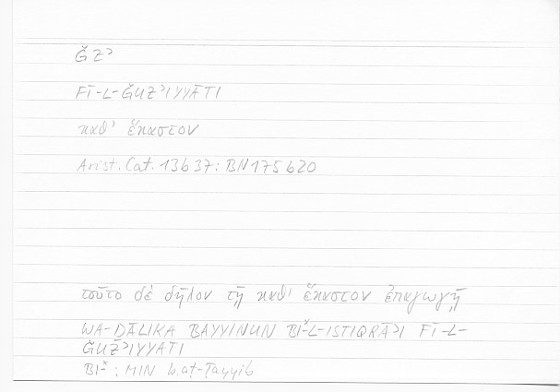 ǦZʾ
FĪ-L-ǦUZʾIYYĀTI
καθ' ἕκαστον
Arist. Cat. 13b37: BN175b20
τοῦτο δὲ δῆλον τῇ καθ' ἕκαστον ἐπαγωγῇ
WA-ḎĀLIKA BAYYINUN BI*-L-ISTIQRĀʾI FĪ-L-
ǦUZʾIYYATI
BI-*: MIN b.aṭ-Ṭayyib